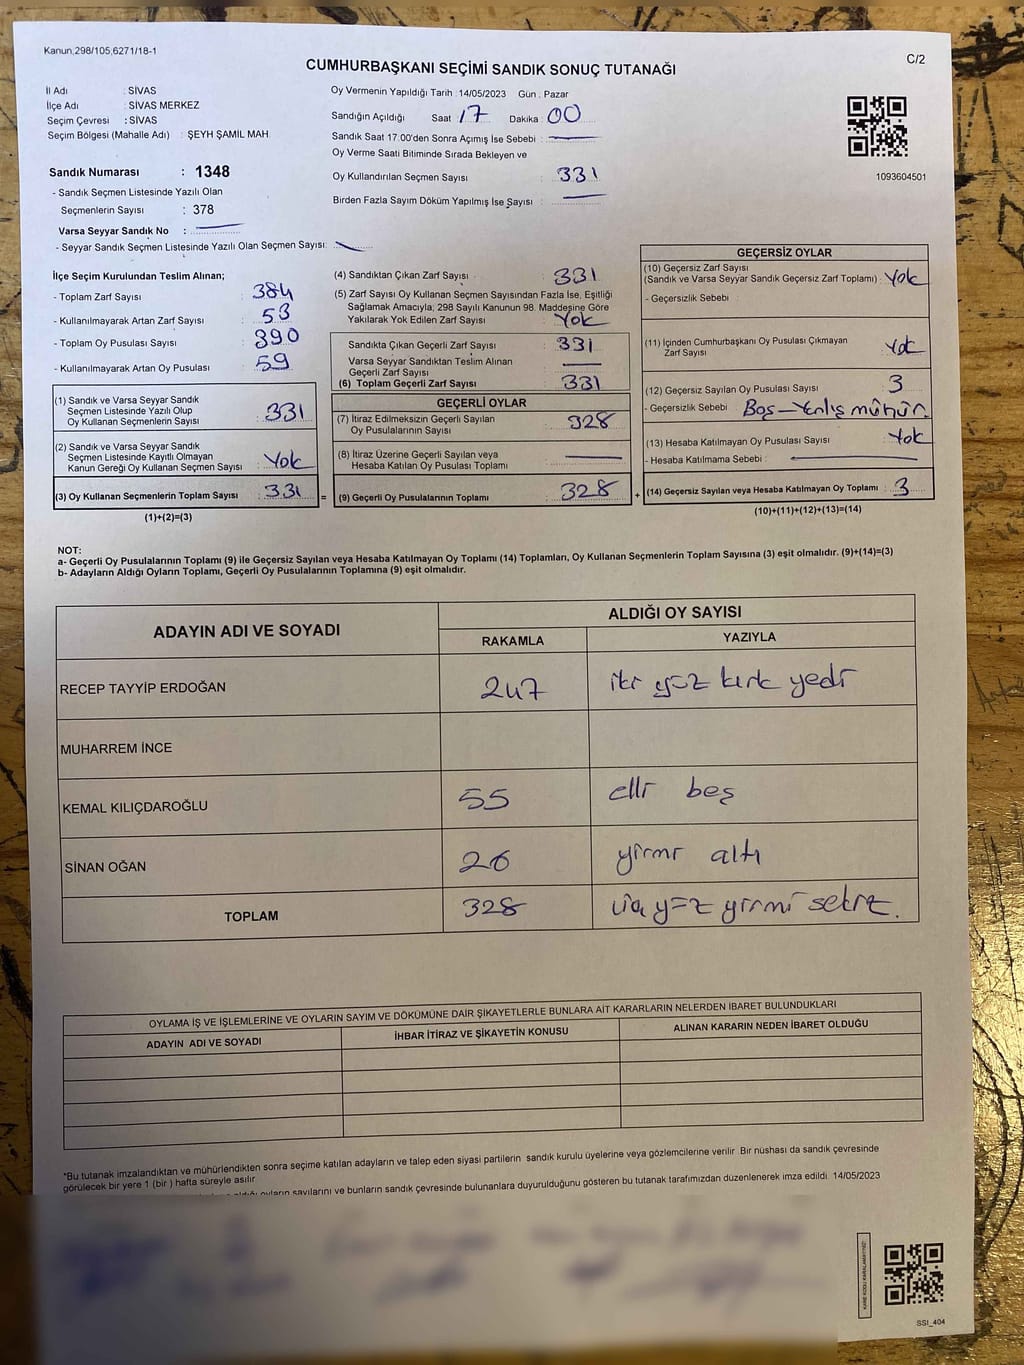 Kanun,298/105,6271/18-1
C/2
CUMHURBAŞKANI SEÇİMİ SANDIK SONUÇ TUTANAĞI
İl Adı : SİVAS
İlçe Adı : SİVAS MERKEZ
Seçim Çevresi : SİVAS
Seçim Bölgesi (Mahalle Adı) : ŞEYH ŞAMİL MAH.
Sandık Numarası : 1348
- Sandık Seçmen Listesinde Yazılı Olan
Seçmenlerin Sayısı : 378
Varsa Seyyar Sandık No :
- Seyyar Sandık Seçmen Listesinde Yazılı Olan Seçmen Sayısı:
Oy Vermenin Yapıldığı Tarih : 14/05/2023 Gün : Pazar
Sandığın Açıldığı Saat : 17 Dakika : 00
Sandık Saat 17:00'den Sonra Açımış İse Sebebi :
Oy Verme Saati Bitiminde Sırada Bekleyen ve
Oy Kullandırılan Seçmen Sayısı : 331
Birden Fazla Sayım Döküm Yapılmış İse Sayısı :
1093604501
İlçe Seçim Kurulundan Teslim Alınan;
- Toplam Zarf Sayısı : 384
- Kullanılmayarak Artan Zarf Sayısı : 53
- Toplam Oy Pusulası Sayısı : 390
- Kullanılmayarak Artan Oy Pusulası : 59
(1) Sandık ve Varsa Seyyar Sandık
Seçmen Listesinde Yazılı Olup
Oy Kullanan Seçmenlerin Sayısı : 331
(2) Sandık ve Varsa Seyyar Sandık
Seçmen Listesinde Kayıtlı Olmayan
Kanun Gereği Oy Kullanan Seçmen Sayısı : Yok
(3) Oy Kullanan Seçmenlerin Toplam Sayısı : 331
(1)+(2)=(3)
(4) Sandıktan Çıkan Zarf Sayısı : 331
(5) Zarf Sayısı Oy Kullanan Seçmen Sayısından Fazla İse, Eşitliği
Sağlamak Amacıyla, 298 Sayılı Kanunun 98. Maddesine Göre
Yakılarak Yok Edilen Zarf Sayısı : Yok
Sandıkta Çıkan Geçerli Zarf Sayısı : 331
Varsa Seyyar Sandıktan Teslim Alınan
Geçerli Zarf Sayısı :
(6) Toplam Geçerli Zarf Sayısı : 331
GEÇERLİ OYLAR
(7) İtiraz Edilmeksizin Geçerli Sayılan
Oy Pusulalarının Sayısı : 328
(8) İtiraz Üzerine Geçerli Sayılan veya
Hesaba Katılan Oy Pusulası Toplamı :
= (9) Geçerli Oy Pusulalarının Toplamı : 328
GEÇERSİZ OYLAR
(10) Geçersiz Zarf Sayısı
(Sandık ve Varsa Seyyar Sandık Geçersiz Zarf Toplamı) : Yok
- Geçersizlik Sebebi :
(11) İçinden Cumhurbaşkanı Oy Pusulası Çıkmayan
Zarf Sayısı : Yok
(12) Geçersiz Sayılan Oy Pusulası Sayısı : 3
- Geçersizlik Sebebi : Boş – Yanlış mühür.
(13) Hesaba Katılmayan Oy Pusulası Sayısı : Yok
- Hesaba Katılmama Sebebi :
+ (14) Geçersiz Sayılan veya Hesaba Katılmayan Oy Toplamı : 3
(10)+(11)+(12)+(13)=(14)
NOT:
a- Geçerli Oy Pusulalarının Toplamı (9) ile Geçersiz Sayılan veya Hesaba Katılmayan Oy Toplamı (14) Toplamları, Oy Kullanan Seçmenlerin Toplam Sayısına (3) eşit olmalıdır. (9)+(14)=(3)
b- Adayların Aldığı Oyların Toplamı, Geçerli Oy Pusulalarının Toplamına (9) eşit olmalıdır.
ADAYIN ADI VE SOYADI
ALDIĞI OY SAYISI
RAKAMLA YAZIYLA
RECEP TAYYİP ERDOĞAN 247 iki yüz kırk yedi
MUHARREM İNCE
KEMAL KILIÇDAROĞLU 55 elli beş
SİNAN OĞAN 26 yirmi altı
TOPLAM 328 üç yüz yirmi sekiz.
OYLAMA İŞ VE İŞLEMLERİNE VE OYLARIN SAYIM VE DÖKÜMÜNE DAİR ŞİKAYETLERLE BUNLARA AİT KARARLARIN NELERDEN İBARET BULUNDUKLARI
ADAYIN ADI VE SOYADI İHBAR İTİRAZ VE ŞİKAYETİN KONUSU ALINAN KARARIN NEDEN İBARET OLDUĞU
*Bu tutanak imzalandıktan ve mühürlendikten sonra seçime katılan adayların ve talep eden siyasi partilerin sandık kurulu üyelerine veya gözlemcilerine verilir. Bir nüshası da sandık çevresinde
görülecek bir yere 1 (bir) hafta süreyle asılır.
oyların sayılarını ve bunların sandık çevresinde bulunanlara duyurulduğunu gösteren bu tutanak tarafımızdan düzenlenerek imza edildi. 14/05/2023
KARE KODU KARALAMAYINIZ!
SSI_404